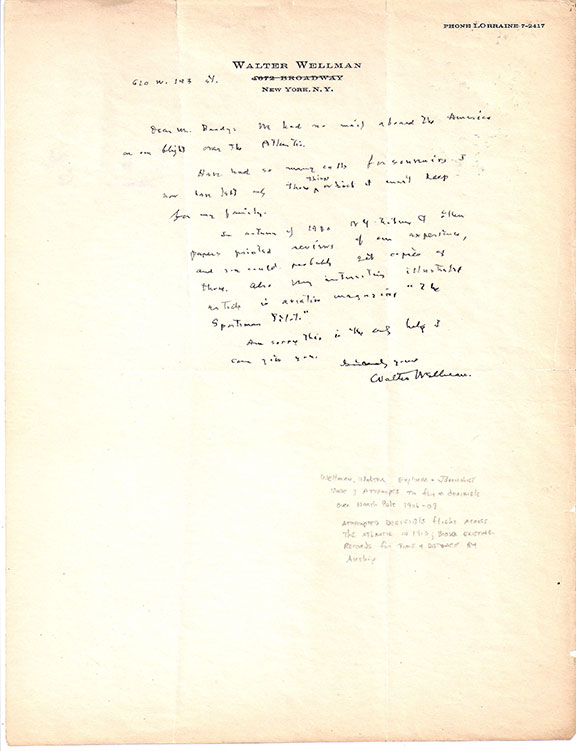 PHONE LORRAINE 7-2417
WALTER WELLMAN
4072 BROADWAY
NEW YORK, N.Y.
610 W. 143 St.
Dear Mr. We had no mail aboard the America
on our flight over the Atlantic.
Have had so many calls for souvenirs I
now have left only those things which I must keep
for my family.
In autumn of 1930 N.Y. Times & other
papers printed reviews of our experience,
and you could probably get copies of
those. Also very interesting illustrated
article in aviation magazine "The
Sportsman Pilot."
Am sorry this is the only help I
can give you. Sincerely yours
Walter Wellman.
Wellman, Walter Explorer + Journalist
Attempted to fly a dirigible
over North Pole 1906-09
Attempted dirigible flight across
the Atlantic in 1910; broke existing
records for time + distance by
Airship